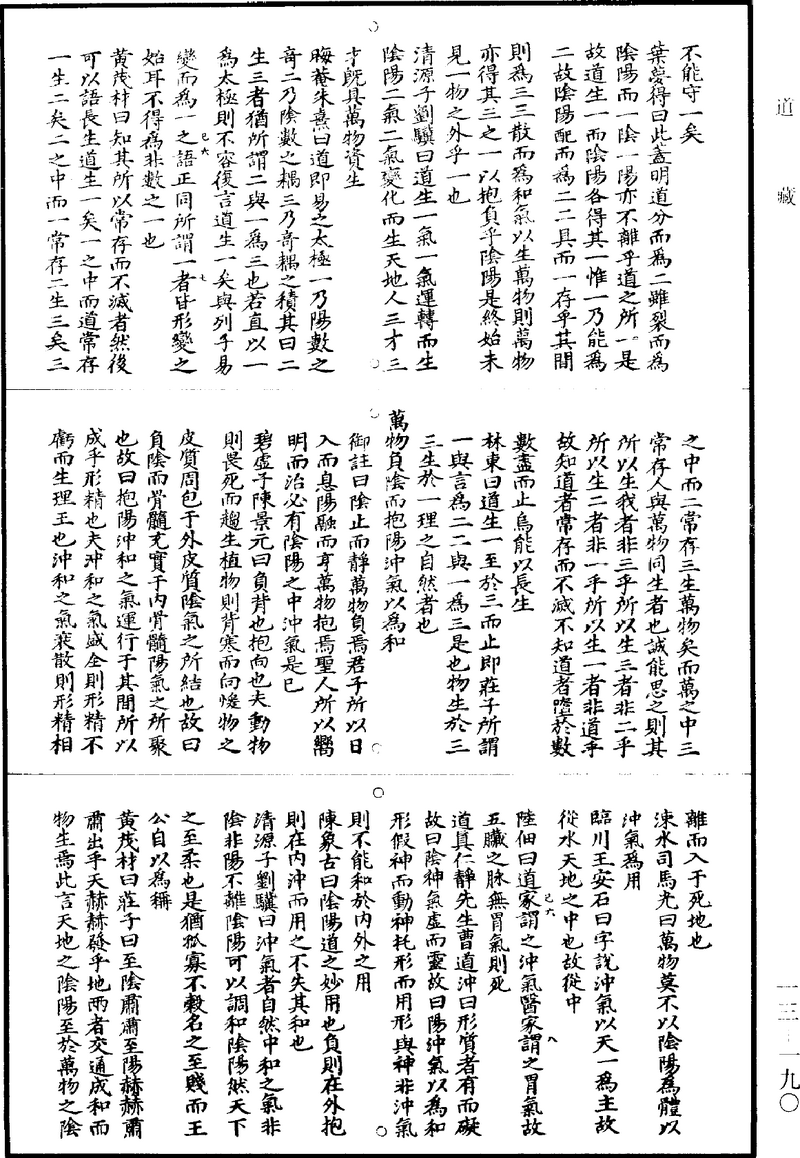 道藏
不能守一矣
葉夢得曰此蓋明道分而為二雖裂而為
陰陽而一陰一陽亦不離乎道之所一是
故道生一而陰陽各得其一惟一乃能為
二故陰陽配而為二二具而一存乎其間
則為三三散而為和氣以生萬物則萬物
亦得其三之一以抱負乎陰陽是終始未
見一物之外乎一也
清源子劉驥曰道生一氣一氣運轉而生
陰陽二氣二氣變化而生天地人三才三
才既具萬物資生
晦菴朱熹曰道即易之太極一乃陽數之
奇二乃陰數之耦三乃奇耦之積其曰二
生三者猶所謂二與一為三也若直以一
為太極則不容復言道生一矣與列子易
變而為一之語正同所謂一者皆形變之
始耳不得為非數之一也
黃茂材曰知其所以常存而不滅者然後
可以語長生道生一矣一之中而道常存
一生二矣二之中而一常存二生三矣三
之中而二常存三生萬物矣而萬之中三
常存人與萬物同生者也誠能思之則其
所以生我者非三乎所以生三者非二乎
所以生二者非一乎所以生一者非道乎
故知道者常存而不滅不知道者墮於數
數盡而止烏能以長生
林東曰道生一至於三而止即莊子所謂
一與言為二二與一為三是也物生於三
三生於一理之自然者也
萬物負陰而抱陽沖氣以為和
御註曰陰止而靜萬物負焉君子所以日
入而息陽融而亨萬物抱焉聖人所以嚮
明而治必有陰陽之中沖氣是已
碧虛子陳景元曰負背也抱向也夫動物
則畏死而趨生植物則背寒而向煖物之
皮質周包于外皮質陰氣之所結也故曰
負陰而骨髓充實于內骨髓陽氣之所聚
也故曰抱陽沖和之氣運行于其間所以
成乎形精也夫沖和之氣盛全則形精不
虧而生理王也沖和之氣衰散則形精相
離而入于死地也
涑水司馬光曰萬物莫不以陰陽為體以
沖氣為用
臨川王安石曰字說沖氣以天一為主故
從水天地之中也故從中
陸佃曰道家謂之沖氣醫家謂之胃氣故
五臟之脉無胃氣則死
道真仁靜先生曹道沖曰形質者有而礙
故曰陰神氣虛而靈故曰陽沖氣以為和
形假神而動神托形而用形與神非沖氣
則不能和於內外之用
陳象古曰陰陽道之妙用也負則在外抱
則在內沖而用之不失其和也
清源子劉驥曰沖氣者自然中和之氣非
陰非陽不離陰陽可以調和陰陽然天下
之至柔也是猶孤寡不穀名之至賤而王
公自以為稱
黃茂材曰莊子曰至陰肅肅至陽赫赫肅
肅出乎天赫赫發乎地兩者交通成和而
物生焉此言天地之陰陽至於萬物之陰
已六
七
已六
八
一三-一九〇